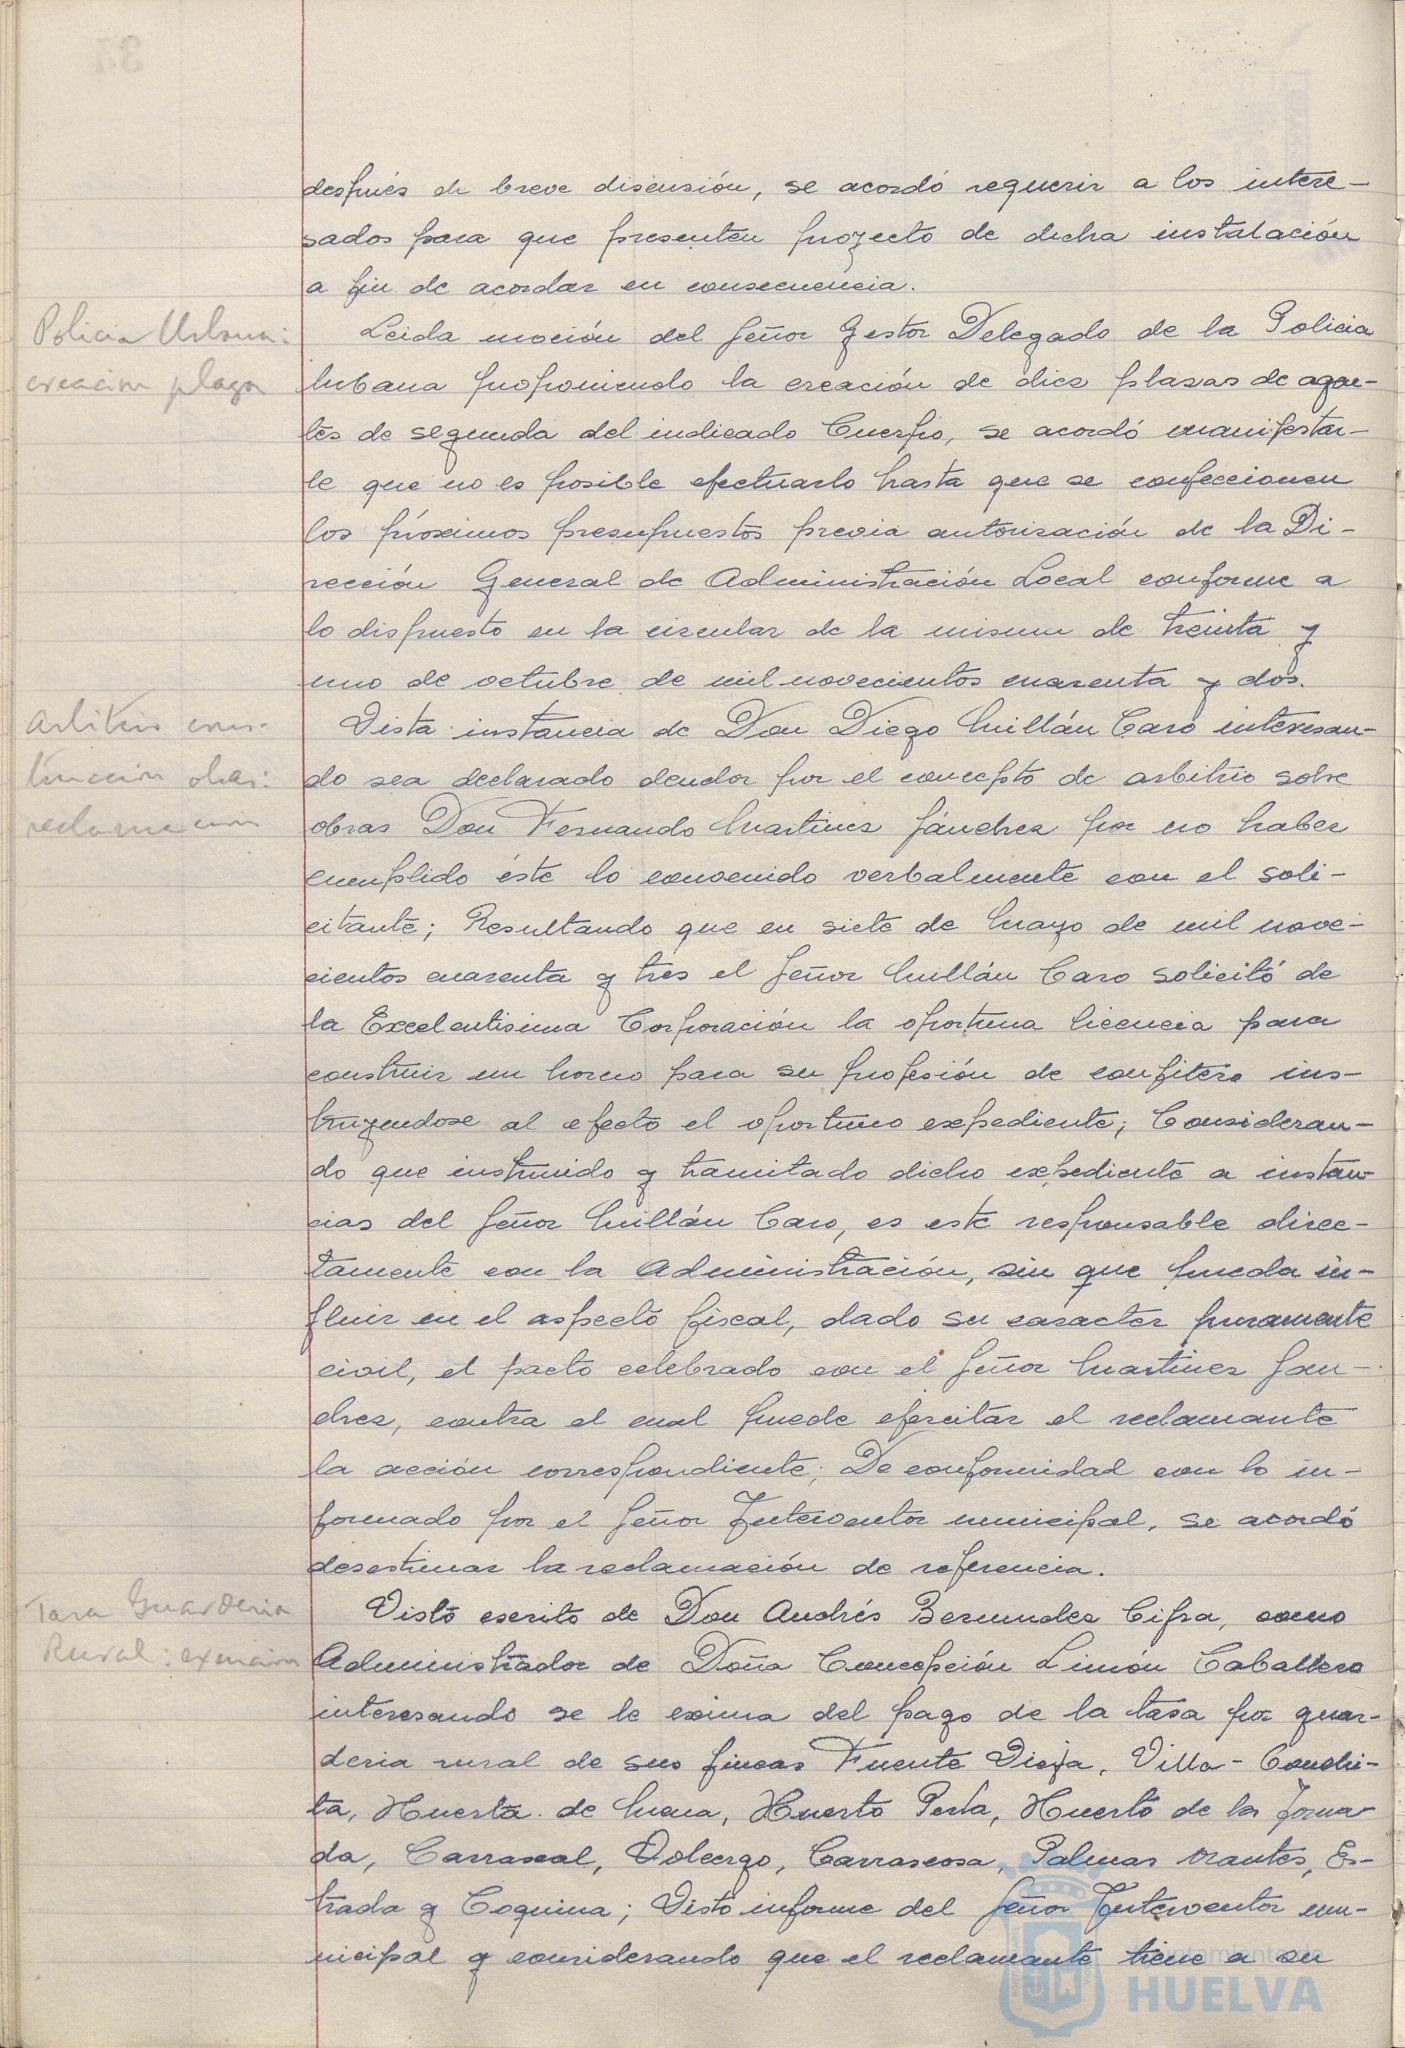 después de breve discusión, se acordó requerir a los intere-
sados para que presenten proyecto de dicha instalación
a fin de acordar en consecuencia.
Policia Urbana:
creacion plazas
Leida moción del Señor Gestor Delegado de la Policia
Urbana proponiendo la creación de diez plazas de agen-
tes de segunda del indicado Cuerpo, se acordó manifestar-
le que no es posible efectuarlo hasta que se confeccionen
los próximos presupuestos previa autorización de la Di-
rección General de Administración Local conforme a
lo dispuesto en la circular de la misma de treinta y
uno de octubre de mil novecientos cuarenta y dos.
Arbitrio cons-
truccion obras:
reclamacion
Vista instancia de Don Diego Millán Caro interesan-
do sea declarado deudor por el concepto de arbitrio sobre
obras Don Fernando Martinez Sánchez por no haber
cumplido éste lo convenido verbalmente con el soli-
citante; Resultando que en siete de Mayo de mil nove-
cientos cuarenta y tres el Señor Millán Caro solicitó de
la Excelentisima Corporación la oportuna licencia para
construir un horno para su profesión de confitero ins-
truyendose al efecto el oportuno expediente; Consideran-
do que instruido y tramitado dicho expediente a instan-
cias del Señor Millán Caro, es este responsable direc-
tamente con la Administración, sin que pueda in-
fluir en el aspecto fiscal, dado su caracter puramente
civil, el pacto celebrado con el Señor Martinez San-
chez, contra el cual puede ejercitar el reclamante
la acción correspondiente; De conformidad con lo in-
formado por el Señor Interventor municipal, se acordó
desestimar la reclamación de referencia.
Tasa Guarderia
Rural: exencion
Visto escrito de Don Andrés Bermudez Cifra, como
Administrador de Doña Concepción Limón Caballero
interesando se le exima del pago de la tasa por guar-
deria rural de sus fincas Fuente Vieja, Villa-Conchi-
ta, Huerta de Mena, Huerto Perla, Huerto de la Joma-
da, Carrascal, Carrascosa, Palmas Orantes, Es-
trada y Coquina; Visto informe del Señor Interventor mu-
nicipal y considerando que el reclamante tiene a su
Ayuntamiento de
HUELVA